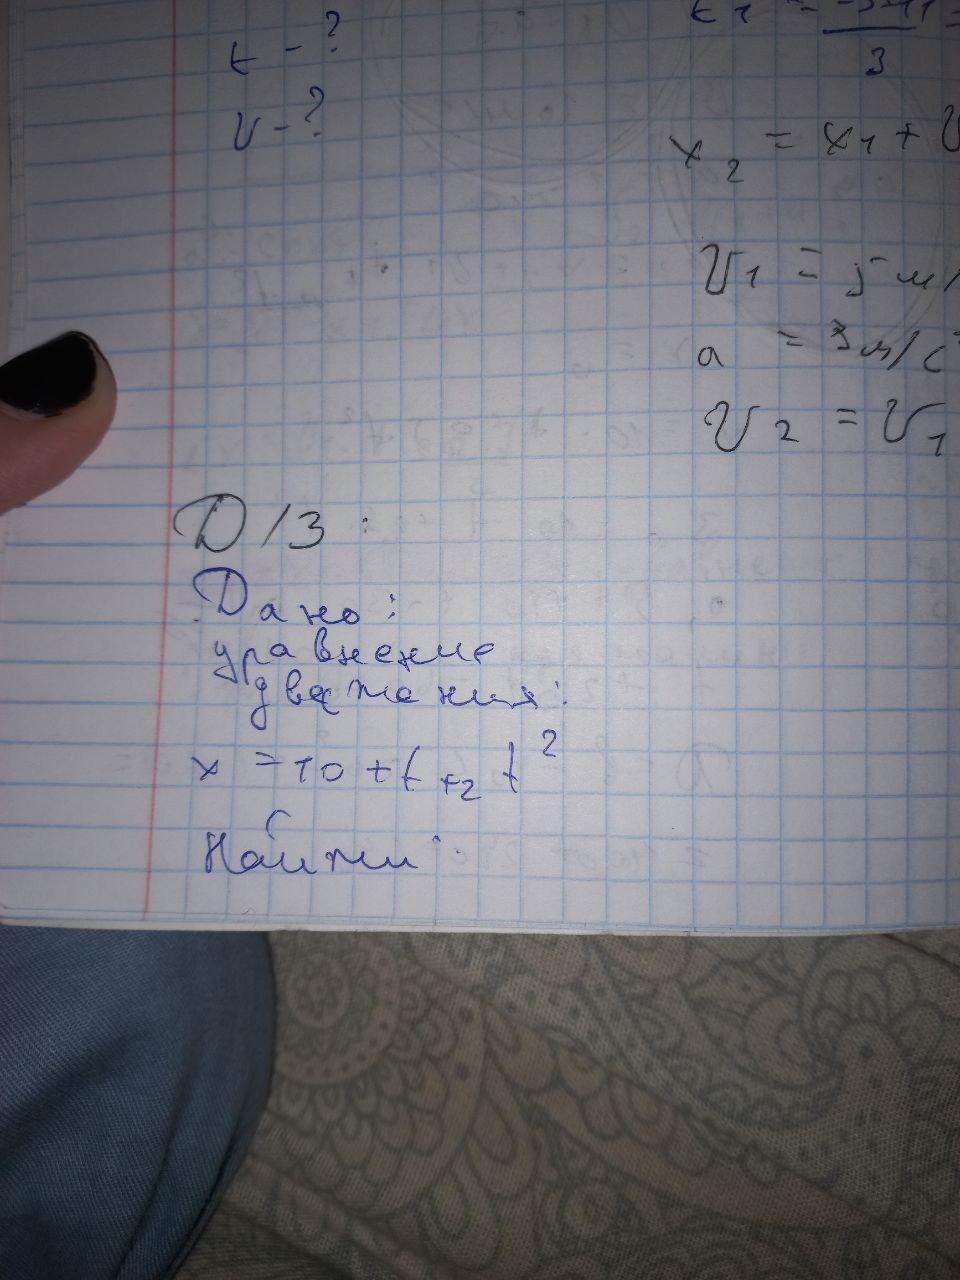 t - ?
v - ?
3
x₂ = x₁ +
v₁ = 5 м/
a = 3м/с
v₂ = v₁
Д/З:
Дано:
уравнение
движения:
x = 10 + t +2 t²
Найти: